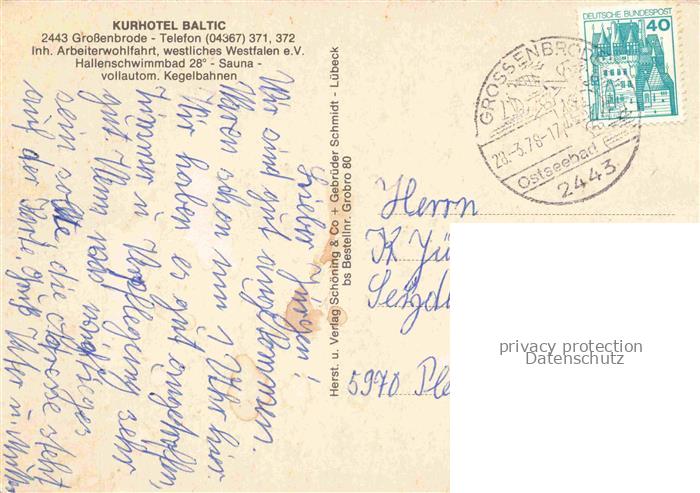 KURHOTEL BALTIC
2443 Großenbrode - Telefon (04367) 371, 372
Inh. Arbeiterwohlfahrt, westliches Westfalen e.V.
Hallenschwimmbad 28° - Sauna -
vollautom. Kegelbahnen
Lieber Jürgen!
Wir sind gut angekommen.
Waren schon um 1 Uhr hier.
Wir haben es gut angetroffen,
Zimmer u. Verpflegung sehr
gut. Wenn was wichtiges
sein sollte die Adresse steht
auf der Karte. Gruß
Herst. u. Verlag Schöning & Co + Gebrüder Schmidt - Lübeck
bs Bestellnr. Grobro 80
DEUTSCHE BUNDESPOST
40
GROSSENBRODE
28.-3.78-17
Ostseebad
2443
Herrn
K
5970 Ple
privacy protection
Datenschutz